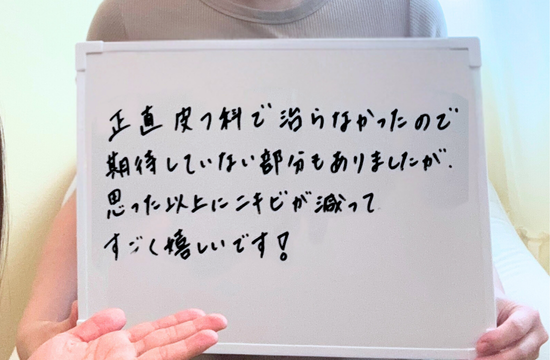 正直 皮フ科で治らなかったので
期待していない部分もありましたが、
思った以上にニキビが減って
すごく嬉しいです!